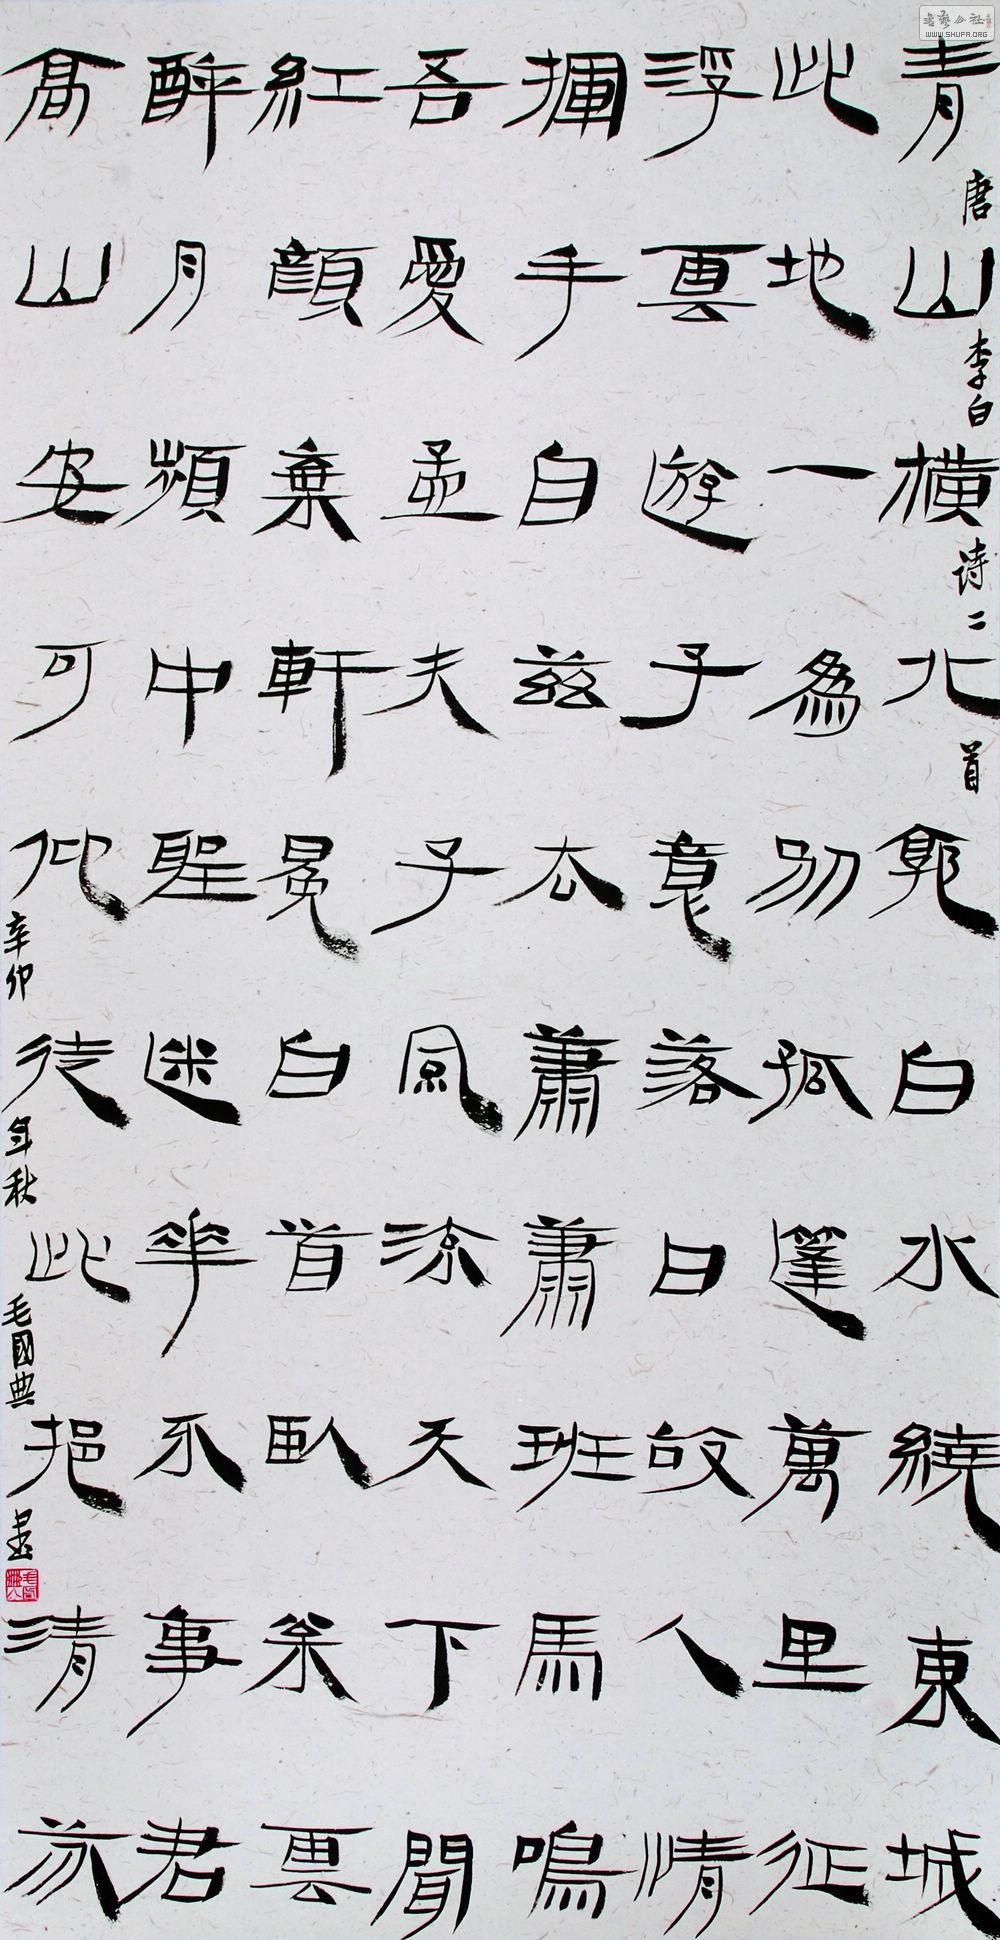 青山橫北郭白水繞東城
此地一為別孤篷萬里征
浮雲遊子意落日故人情
揮手自茲去蕭蕭班馬鳴
吾愛孟夫子風流天下聞
紅顏棄軒冕白首臥松雲
醉月頻中聖迷花不事君
高山安可仰徒此挹清芬
唐李白詩二首
辛卯年秋毛國典書
书艺公社
WWW.SHUFA.ORG